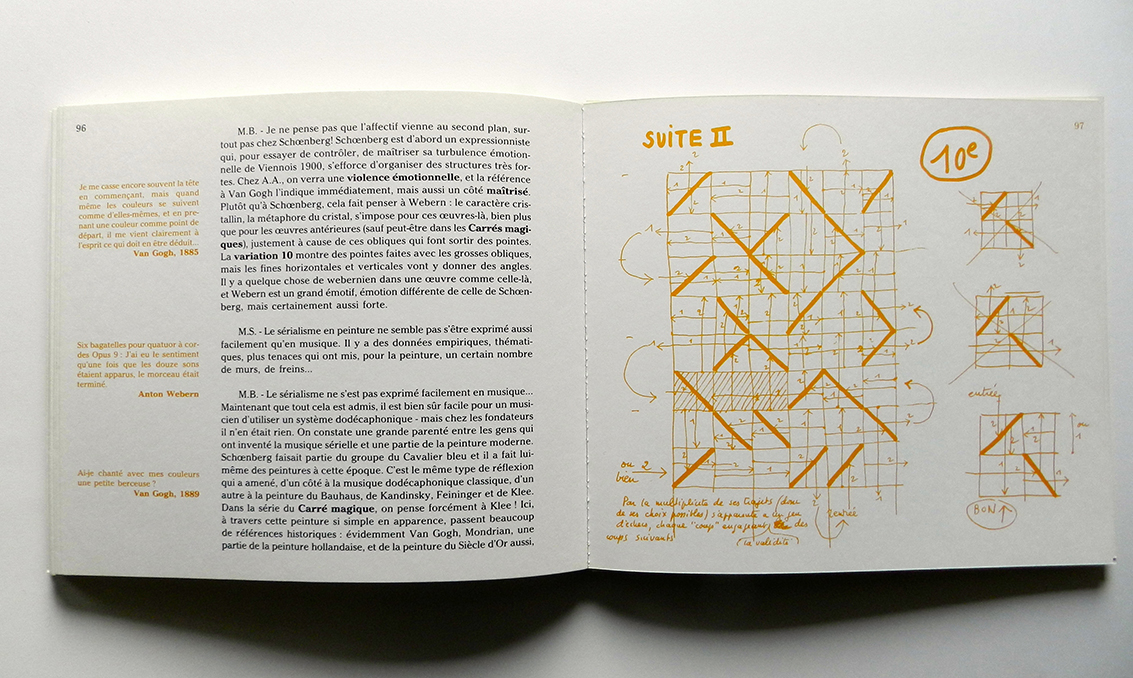 96
Je me casse encore souvent la tête
en commençant, mais quand
même les couleurs se suivent
comme d'elles-mêmes, et en pre-
nant une couleur comme point de
départ, il me vient clairement à
l'esprit ce qui doit en être déduit...
Van Gogh, 1885
Six bagatelles pour quatuor à cor-
des Opus 9 : J'ai eu le sentiment
qu'une fois que les douze sons
étaient apparus, le morceau était
terminé.
Anton Webern
Ai-je chanté avec mes couleurs
une petite berceuse ?
Van Gogh, 1889
M.B. - Je ne pense pas que l'affectif vienne au second plan, sur-
tout pas chez Schœnberg! Schœnberg est d'abord un expressionniste
qui, pour essayer de contrôler, de maîtriser sa turbulence émotion-
nelle de Viennois 1900, s'efforce d'organiser des structures très for-
tes. Chez A.A., on verra une violence émotionnelle, et la référence
à Van Gogh l'indique immédiatement, mais aussi un côté maîtrisé.
Plutôt qu'à Schœnberg, cela fait penser à Webern : le caractère cris-
tallin, la métaphore du cristal, s'impose pour ces œuvres-là, bien plus
que pour les œuvres antérieures (sauf peut-être dans les Carrés magi-
ques), justement à cause de ces obliques qui font sortir des pointes.
La variation 10 montre des pointes faites avec les grosses obliques,
mais les fines horizontales et verticales vont y donner des angles.
Il y a quelque chose de webernien dans une œuvre comme celle-là,
et Webern est un grand émotif, émotion différente de celle de Schœn-
berg, mais certainement aussi forte.
M.S. - Le sérialisme en peinture ne semble pas s'être exprimé aussi
facilement qu'en musique. Il y a des données empiriques, thémati-
ques, plus tenaces qui ont mis, pour la peinture, un certain nombre
de murs, de freins...
M.B. - Le sérialisme ne s'est pas exprimé facilement en musique...
Maintenant que tout cela est admis, il est bien sûr facile pour un musi-
cien d'utiliser un système dodécaphonique - mais chez les fondateurs
il n'en était rien. On constate une grande parenté entre les gens qui
ont inventé la musique sérielle et une partie de la peinture moderne.
Schœnberg faisait partie du groupe du Cavalier bleu et il a fait lui-
même des peintures à cette époque. C'est le même type de réflexion
qui a amené, d'un côté à la musique dodécaphonique classique, d'un
autre à la peinture du Bauhaus, de Kandinsky, Feininger et de Klee.
Dans la série du Carré magique, on pense forcément à Klee ! Ici,
à travers cette peinture si simple en apparence, passent beaucoup
de références historiques : évidemment Van Gogh, Mondrian, une
partie de la peinture hollandaise, et de la peinture du Siècle d'Or aussi,
97
SUITE II
10e
entrée
ou
1
BON
ou 2
bien
rentrée
Par la multiplicité de ses trajets (donc
de ses choix possibles) s'apparente à un jeu
d'échecs, chaque "coup" engageant des
coups suivants
(la validité)